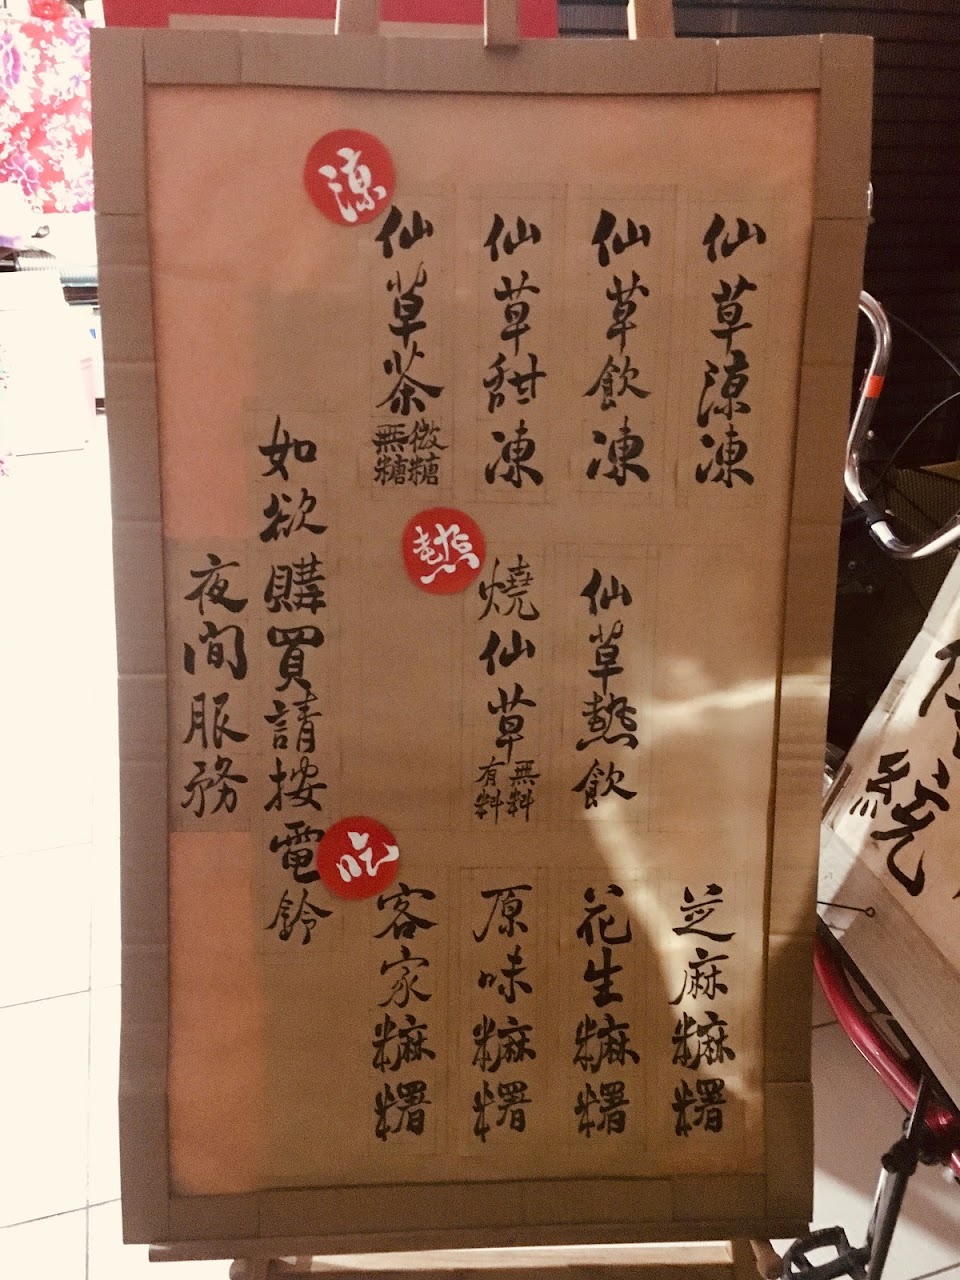 涼
仙草涼凍
仙草飲凍
仙草甜凍
仙草茶
微糖
無糖
熱
仙草熱飲
燒仙草
無料
有料
吃
芝麻糜糬
花生糜糬
原味糜糬
客家糜糬
如欲購買請按電鈴
夜間服務
傳統